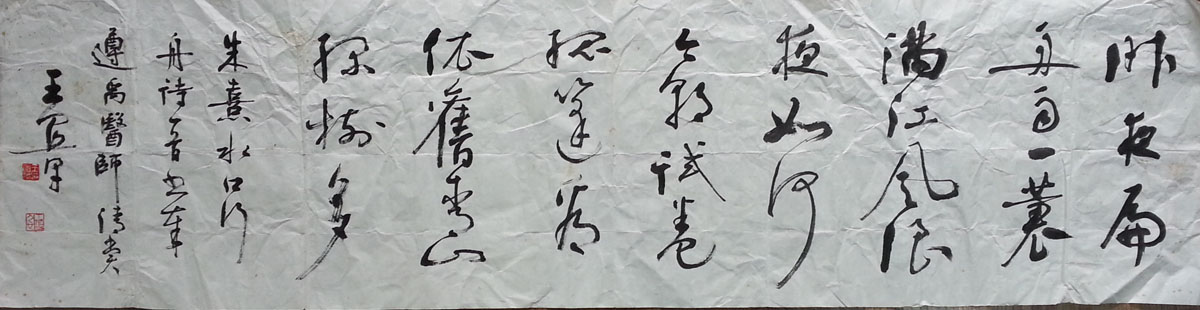 昨夜扁
舟雨一蓑
滿江風浪
夜如何
今朝試卷
孤篷看
依舊青山
綠樹多
朱熹水口行
舟詩一首書奉
遵禹醫師賞
王